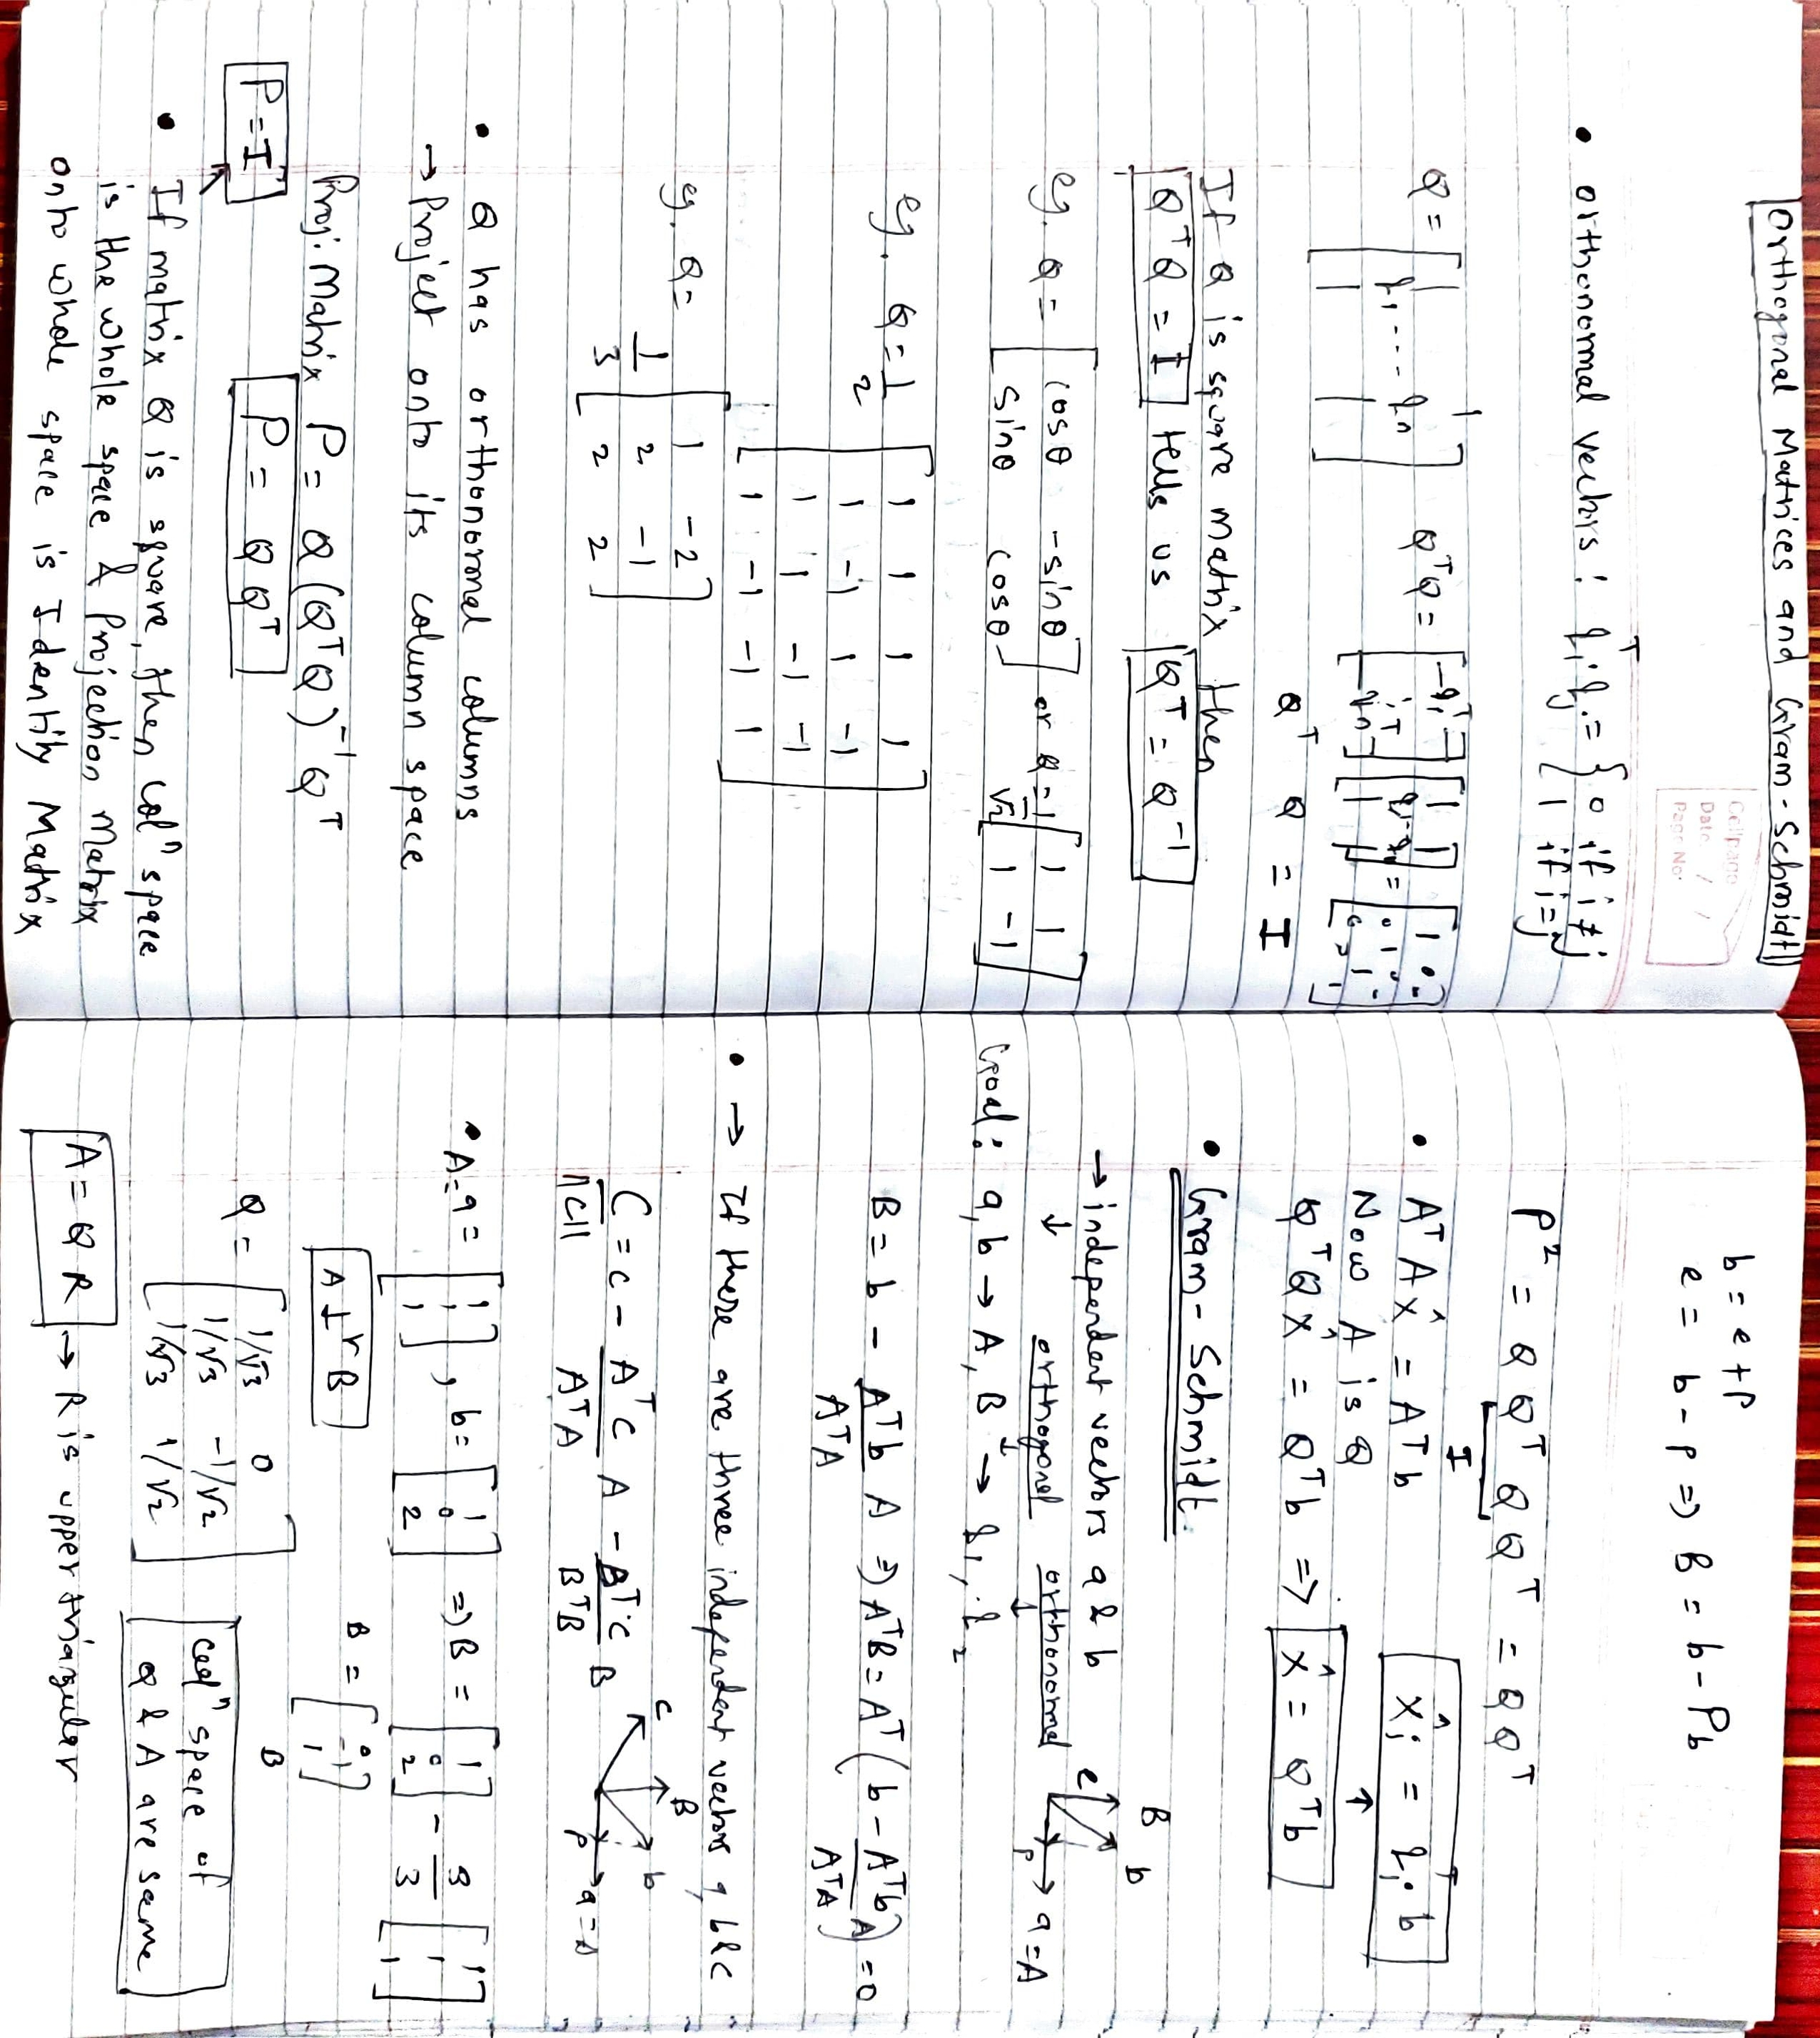 Orthogonal Matrices and Gram-Schmidt
Cellpage
Date / /
Page No:
• orthonormal vectors: qᵢᵀqⱼ = { 0 if i ≠ j
1 if i = j
Q = [ | |
q₁ ---- qₙ
| | ] QᵀQ = [ -q₁ᵀ-
:
-qₙᵀ- ] [ | |
q₁ -- qₙ
| | ] = [ 1 0
0 1 0
0 0 1 ]
Qᵀ Q = I
If Q is square matrix then
QᵀQ = I tells us Qᵀ = Q⁻¹
eg. Q = [ cosθ -sinθ
sinθ cosθ ] or Q = 1/√2 [ 1 1
1 -1 ]
eg. Q = 1/2 [ 1 1 1 1
1 -1 1 -1
1 1 -1 -1
1 -1 -1 1 ]
eg. Q = 1/3 [ 1 -2
2 -1
2 2 ]
• Q has orthonormal columns
→ Project onto its column space
Proj. Matrix P = Q(QᵀQ)⁻¹Qᵀ
P = I P = QQᵀ
• If matrix Q is square, then colⁿ space
is the whole space & Projection Matrix
onto whole space is Identity Matrix
b = e + p
e = b - p ⇒ B = b - Pb
P² = Q Qᵀ Q Qᵀ = Q Qᵀ
I
• AᵀA x̂ = Aᵀb x̂ᵢ = qᵢᵀ b
Now A is Q ↑
QᵀQ x̂ = Qᵀb ⇒ x̂ = Qᵀb
• Gram-Schmidt.
B b
→ independent vectors a & b e
↓ orthogonal orthonormal p a = A
Goal: a, b → A, B → q₁, q₂
B = b - Aᵀb/AᵀA A ⇒ AᵀB = Aᵀ( b - Aᵀb/AᵀA A ) = 0
• → If there are three independent vectors a, b & c
C/||C|| = c - AᵀC/AᵀA A - Bᵀc/BᵀB B
c B b p a = A
• A = a = [ 1
1
1 ], b = [ 1
0
2 ] ⇒ B = [ 1
0
2 ] - 3/3 [ 1
1
1 ]
A ⊥ʳ B B = [ 0
-1
1 ]
B
Q = [ 1/√3 0
1/√3 -1/√2
1/√3 1/√2 ]
colⁿ space of
Q & A are same
A = Q R → R is upper triangular